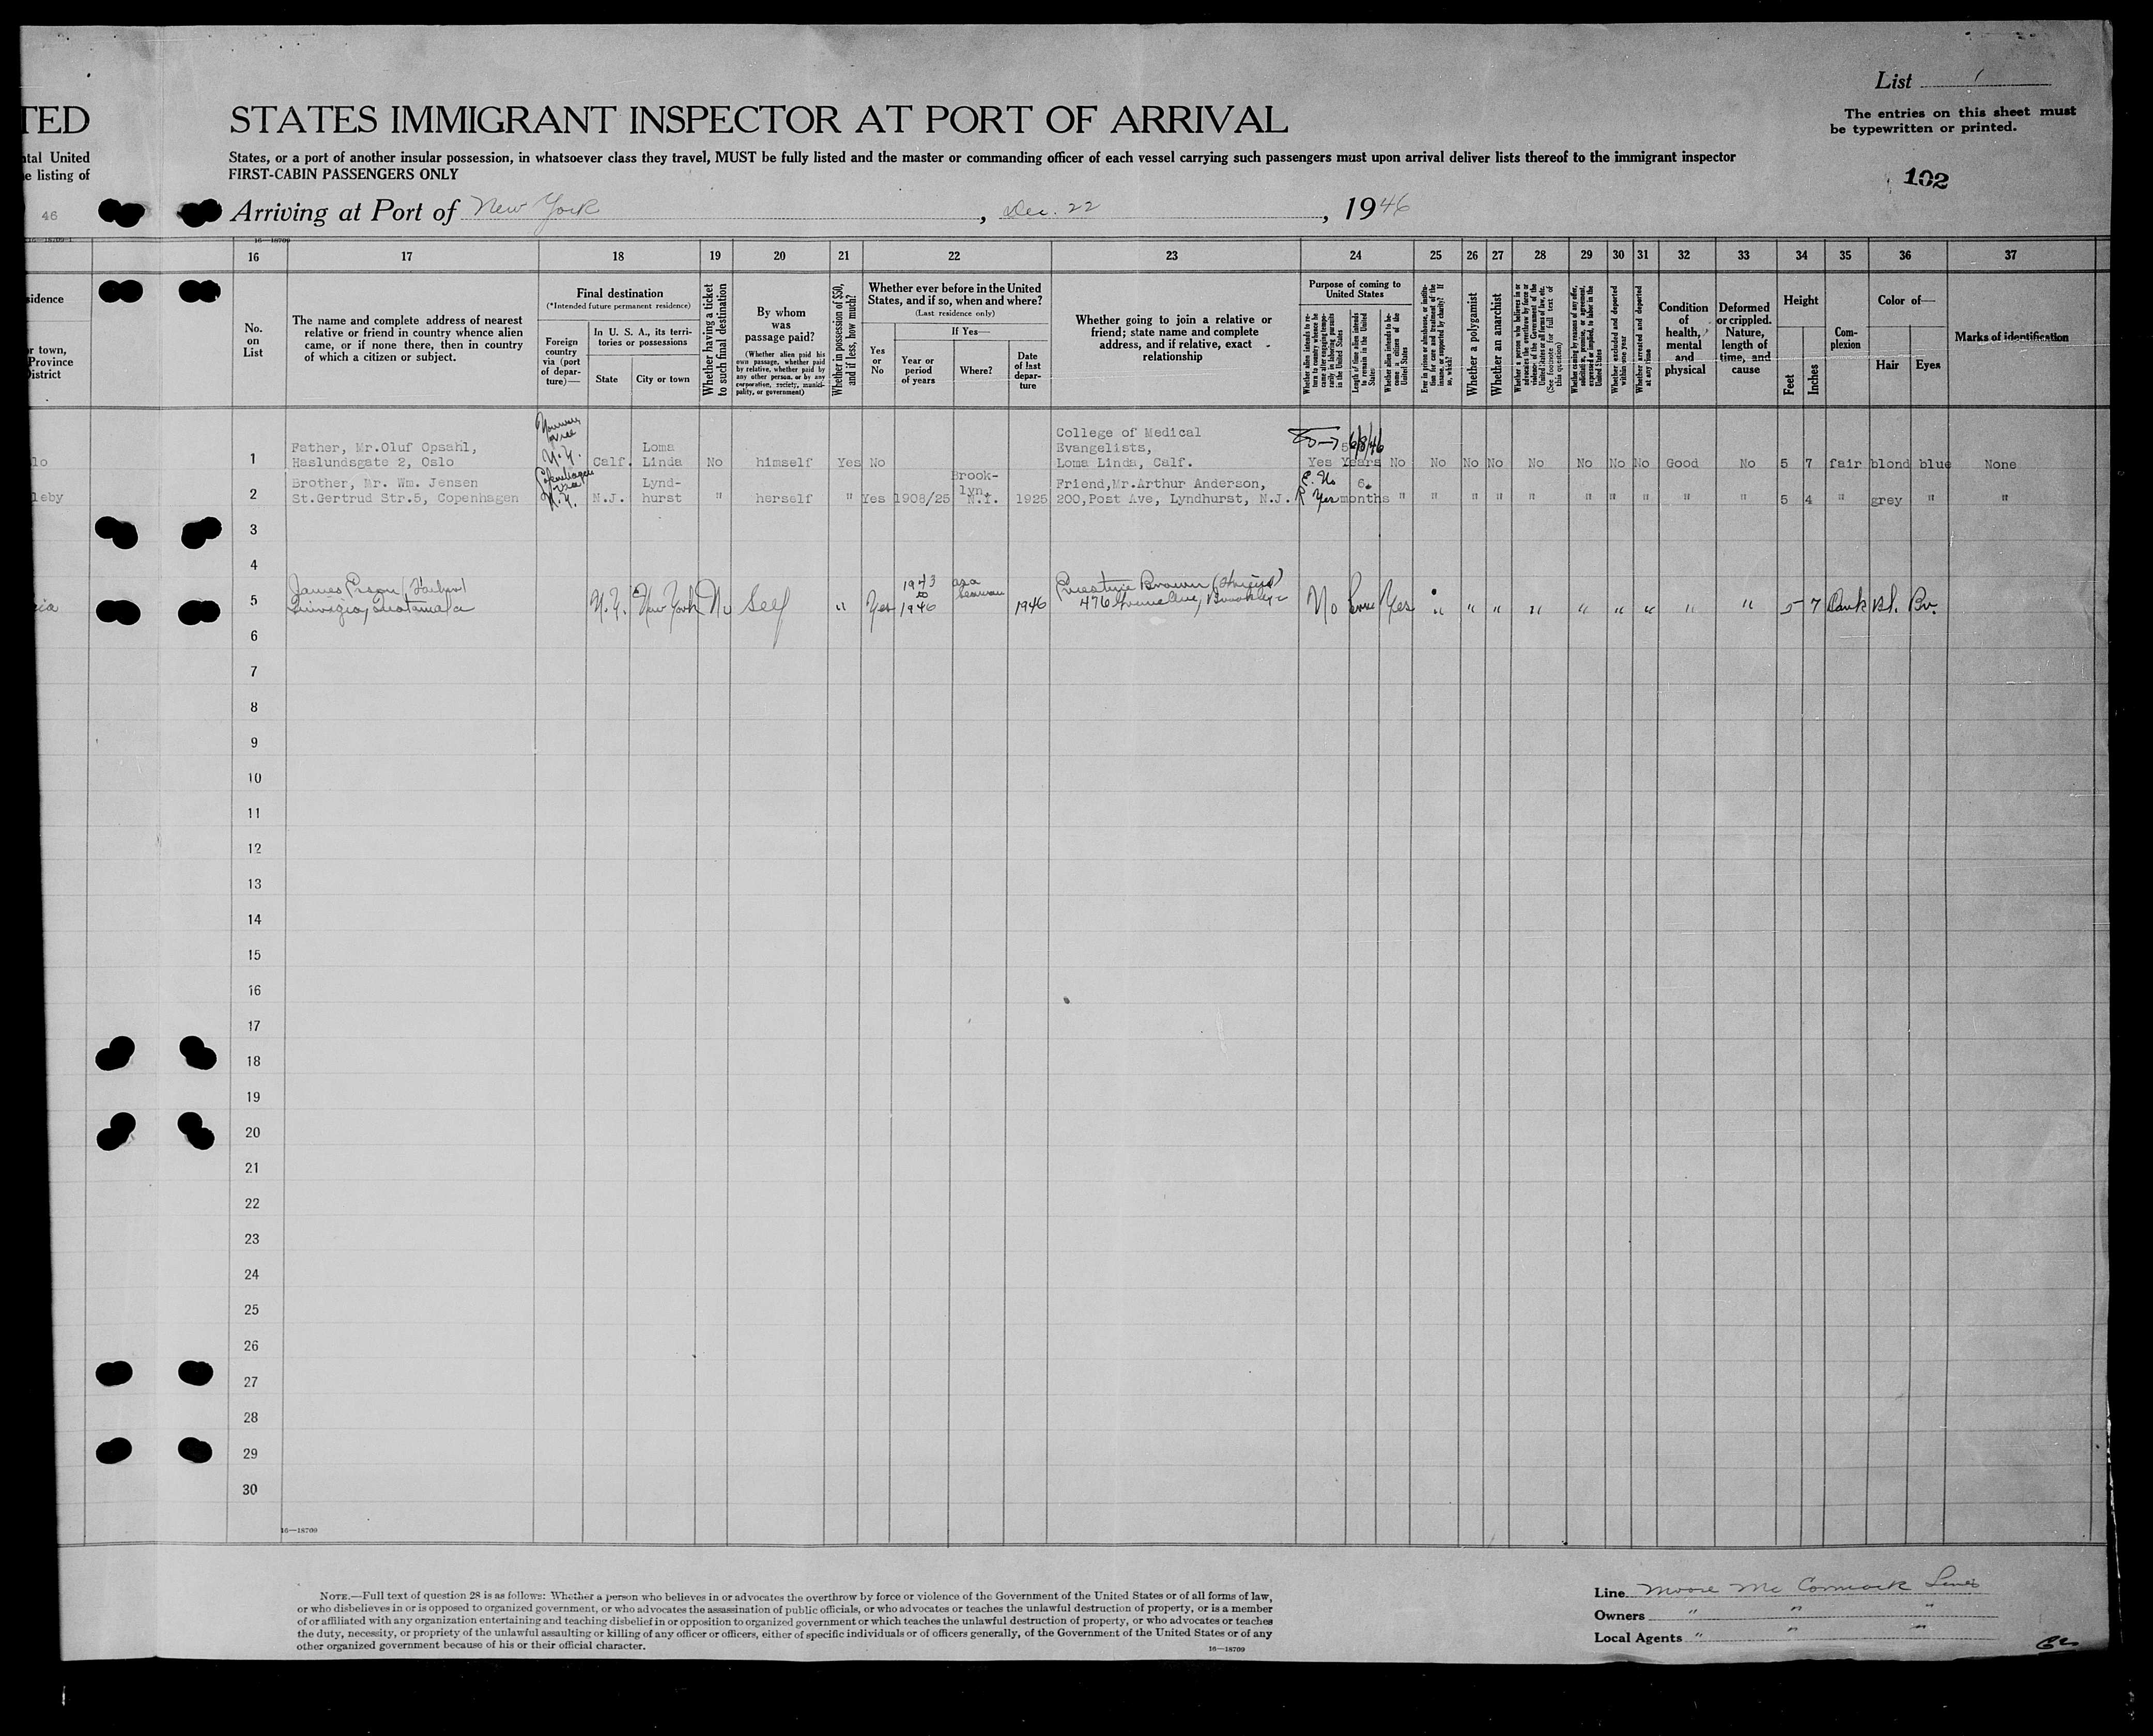 List 1
The entries on this sheet must
be typewritten or printed.
102
TED STATES IMMIGRANT INSPECTOR AT PORT OF ARRIVAL
tal United States, or a port of another insular possession, in whatsoever class they travel, MUST be fully listed and the master or commanding officer of each vessel carrying such passengers must upon arrival deliver lists thereof to the immigrant inspector
e listing of FIRST-CABIN PASSENGERS ONLY
46 Arriving at Port of New York, Dec. 22, 1946
16—18709
16 17 18 19 20 21 22 23 24 25 26 27 28 29 30 31 32 33 34 35 36 37
sidence
r town,
Province
District
No.
on
List
The name and complete address of nearest
relative or friend in country whence alien
came, or if none there, then in country
of which a citizen or subject.
Final destination
(*Intended future permanent residence)
Foreign
country
via (port
of depar-
ture)—
In U. S. A., its terri-
tories or possessions
State
City or town
Whether having a ticket
to such final destination
By whom
was
passage paid?
(Whether alien paid his
own passage, whether paid
by relative, whether paid by
any other person, or by any
corporation, society, munici-
pality, or government)
Whether in possession of $50,
and if less, how much?
Whether ever before in the United
States, and if so, when and where?
(Last residence only)
If Yes—
Yes
or
No
Year or
period
of years
Where?
Date
of last
depar-
ture
Whether going to join a relative or
friend; state name and complete
address, and if relative, exact
relationship
Purpose of coming to
United States
Whether alien intends to re-
turn to country whence he
came after engaging tempo-
rarily in laboring pursuits
in the United States
Length of time alien intends
to remain in the United
States
Whether alien intends to be-
come a citizen of the
United States
Ever in prison or almshouse, or institu-
tion for care and treatment of the
insane, or supported by charity? If
so, which?
Whether a polygamist
Whether an anarchist
Whether a person who believes in or
advocates the overthrow by force or
violence of the Government of the
United States or all forms of law, etc.
(See footnote for full text of
this question)
Whether coming by reasons of any offer,
solicitation, promise, or agreement,
expressed or implied, to labor in the
United States
Whether excluded and deported
within one year
Whether arrested and deported
at any time
Condition
of
health,
mental
and
physical
Deformed
or crippled.
Nature,
length of
time, and
cause
Height
Feet
Inches
Com-
plexion
Color of—
Hair
Eyes
Marks of identification
lo
1
Father, Mr.Oluf Opsahl,
Haslundsgate 2, Oslo
Norway
via
N.Y.
Calf.
Loma
Linda
No himself Yes No
College of Medical
Evangelists,
Loma Linda, Calf.
6/8/46
Yes Years No No No No No No No No Good No 5 7 fair blond blue None
leby
2
Brother, Mr. Wm. Jensen
St.Gertrud Str.5, Copenhagen
Copenhagen
via
N.Y.
N.J.
Lynd-
hurst
" herself " Yes 1908/25
Brook-
lyn,
N.Y.
1925
Friend,Mr.Arthur Anderson,
200,Post Ave, Lyndhurst, N.J.
No
Yes
6
months
" " " " " " " " " " 5 4 " grey " "
3
4
5
N.Y. New York No Self " Yes
1943
to
1946
1946
Brown
476 Ave, Brooklyn
No Yes " " " " " " " " " 5 7 Dark Bl. Br.
6
7
8
9
10
11
12
13
14
15
16
17
18
19
20
21
22
23
24
25
26
27
28
29
30
16—18709
NOTE.—Full text of question 28 is as follows: Whether a person who believes in or advocates the overthrow by force or violence of the Government of the United States or of all forms of law,
or who disbelieves in or is opposed to organized government, or who advocates the assassination of public officials, or who advocates or teaches the unlawful destruction of property, or is a member
of or affiliated with any organization entertaining and teaching disbelief in or opposition to organized government or which teaches the unlawful destruction of property, or who advocates or teaches
the duty, necessity, or propriety of the unlawful assaulting or killing of any officer or officers, either of specific individuals or of officers generally, of the Government of the United States or of any
other organized government because of his or their official character.
16—18709
Line Moore Mc Cormack Lines
Owners " " "
Local Agents " " "